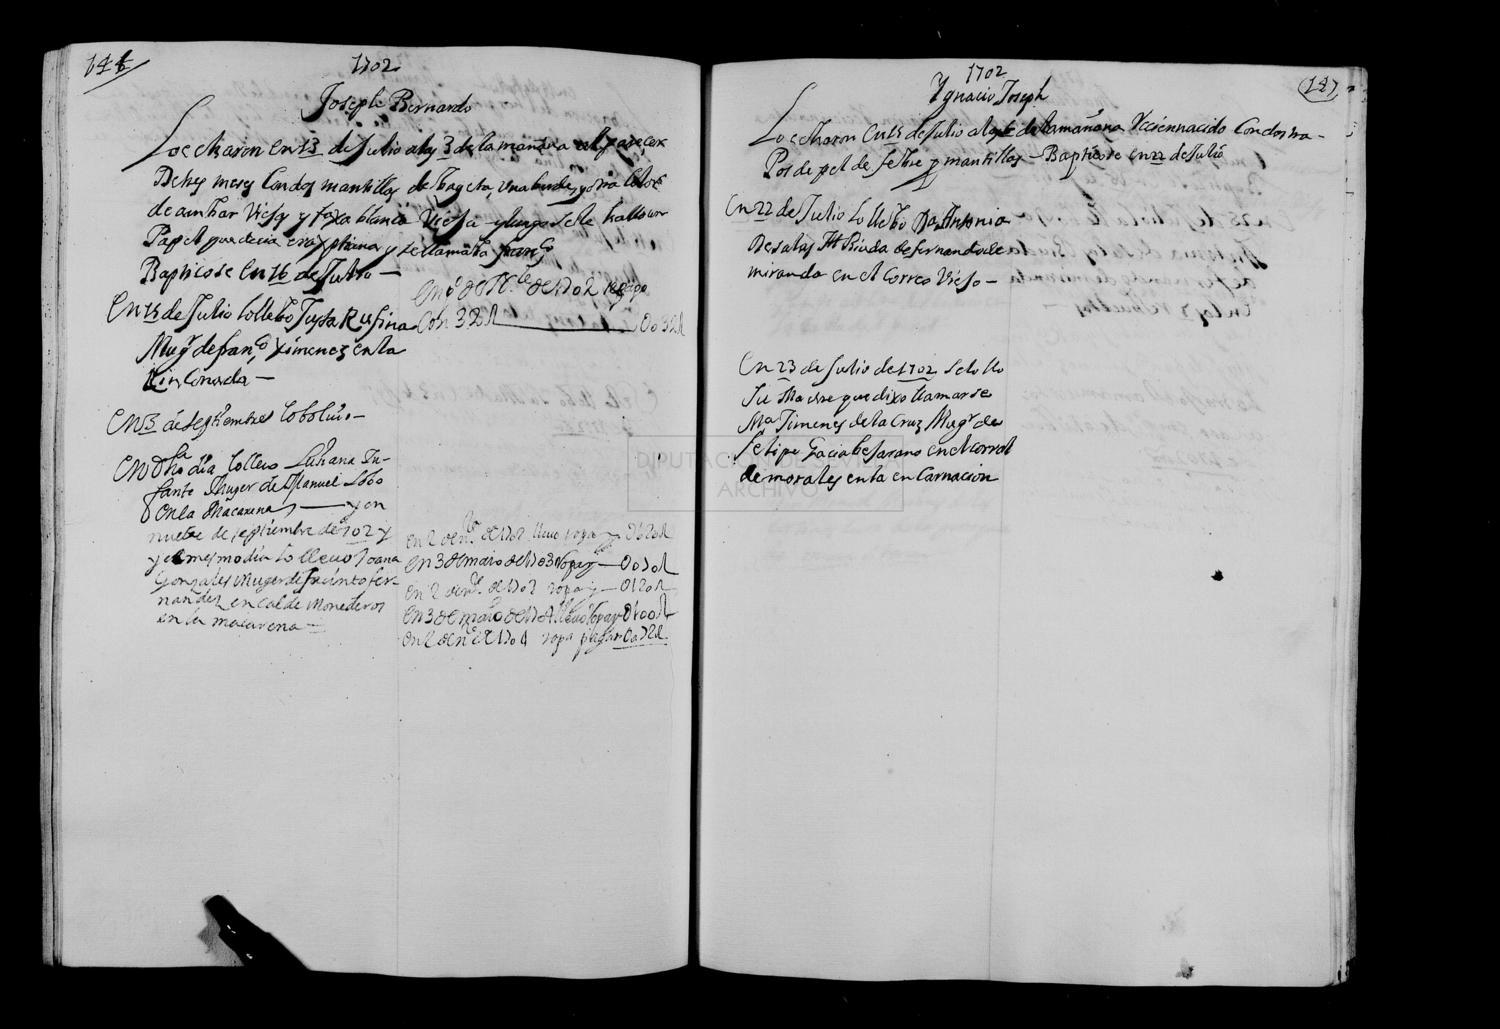 144
1702
Joseph Bernardo
Lo echaron en 13 de Julio a las 3 de la mañana al parecer
De tres meses Con dos mantillas de bayeta, una berde, y otra Color
de ambar Viejas y faxa blanca Vieja y luego se le hallo un
Papel que decia era xptiana y se llamaba
Baptiçose en 16 de Julio —
En 15 de Julio lo llebo Justa Rufina
Mugr de franco Ximenez en la
Rinconada —
En 3 de septiembre lo bolvio —
En dho dia lo llevo Luisiana In-
fante Muger de Manuel Lobo
En la Macarena — y en
nuebe de septiembre de 702 y
y el mesmo dia lo llevo Joana
Gonzales Muger de Jacinto fer-
nandez en cal de Monederos
en la macarena —
de 1702
Con 32 — 0032
en 2 de de 1702 llevo ropa —
en 3 de maio de 1703 ropa —
en 2 de ropa —
en 3 de maio de 1704 llevo ropa
en 2 de 1704 ropa
1702
147
Ygnacio Joseph
Lo echaron en 15 de Julio a las de la mañana Reciennacido Con dos tra-
Pos de pel de febre y mantillas — Baptiçose en 22 de Julio
En 22 de Julio lo llebo Da Antonia
De salas Biuda de fernando de
miranda en el Correo Viejo —
En 23 de Julio de 1702 se lo llo
Su Madre que dixo llamarse
Ma Ximenes de la Cruz Mugr de
felipe Gracia Bejarano en el corral
de morales en la en Carnacion
DIPUTACIÓN DE SEVILLA
ARCHIVO